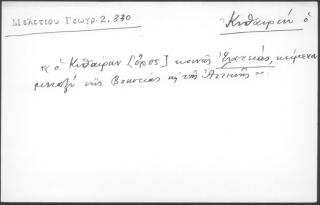 Μελετίου Γεωγρ. 2, 330
Κιθαιρών ὁ
« ὁ Κιθαιρὼν [ὄρος] κοινῶς Ἐλατιάς, κείμενον
μεταξὺ τῆς Βοιωτίας κ̀ τῆς Ἀττικῆς ».